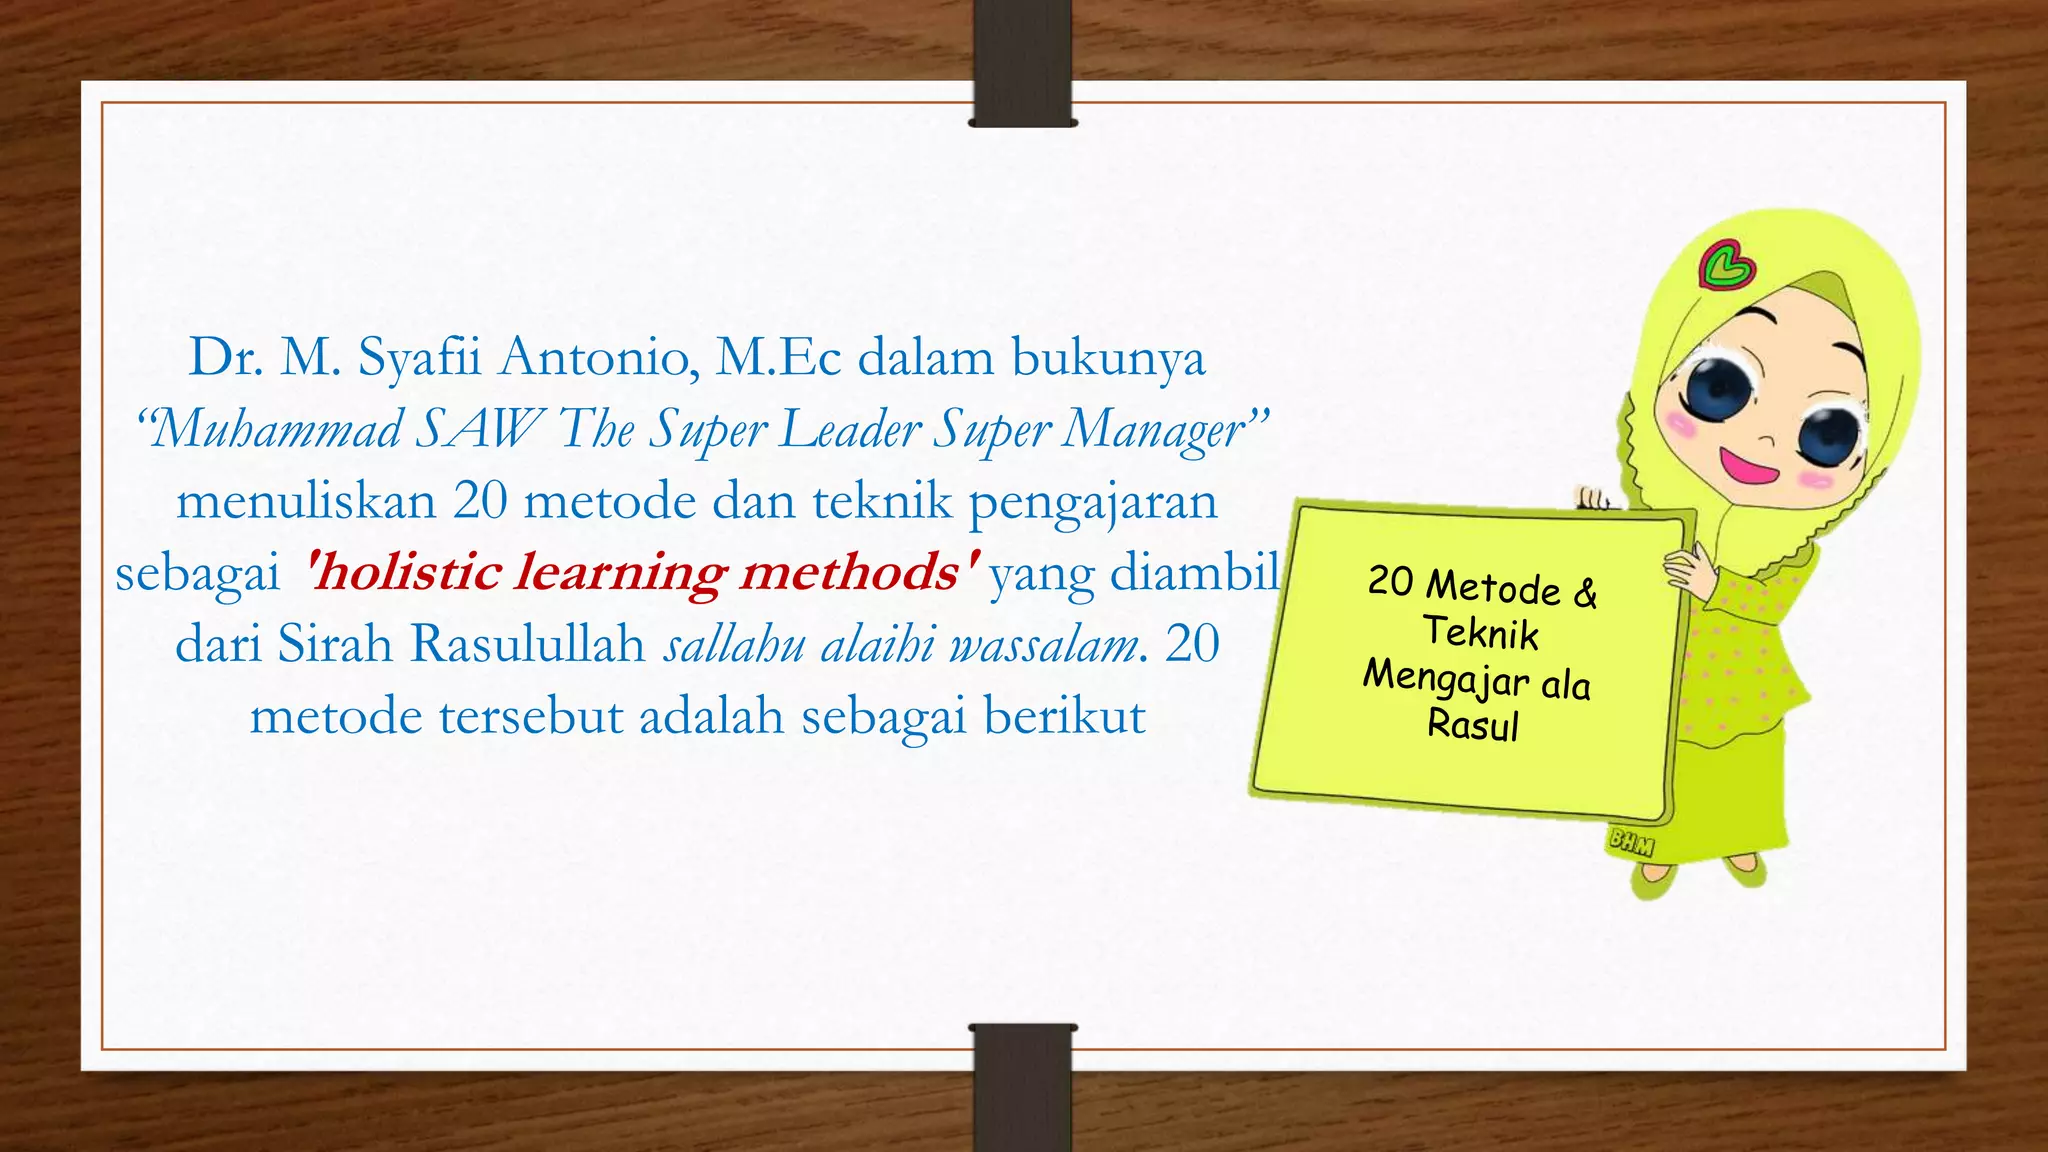 Dr. M. Syafii Antonio, M.Ec dalam bukunya
“Muhammad SAW The Super Leader Super Manager”
menuliskan 20 metode dan teknik pengajaran
sebagai 'holistic learning methods' yang diambil
dari Sirah Rasulullah sallahu alaihi wassalam. 20
metode tersebut adalah sebagai berikut
20 Metode &
Teknik
Mengajar ala
Rasul
BHM